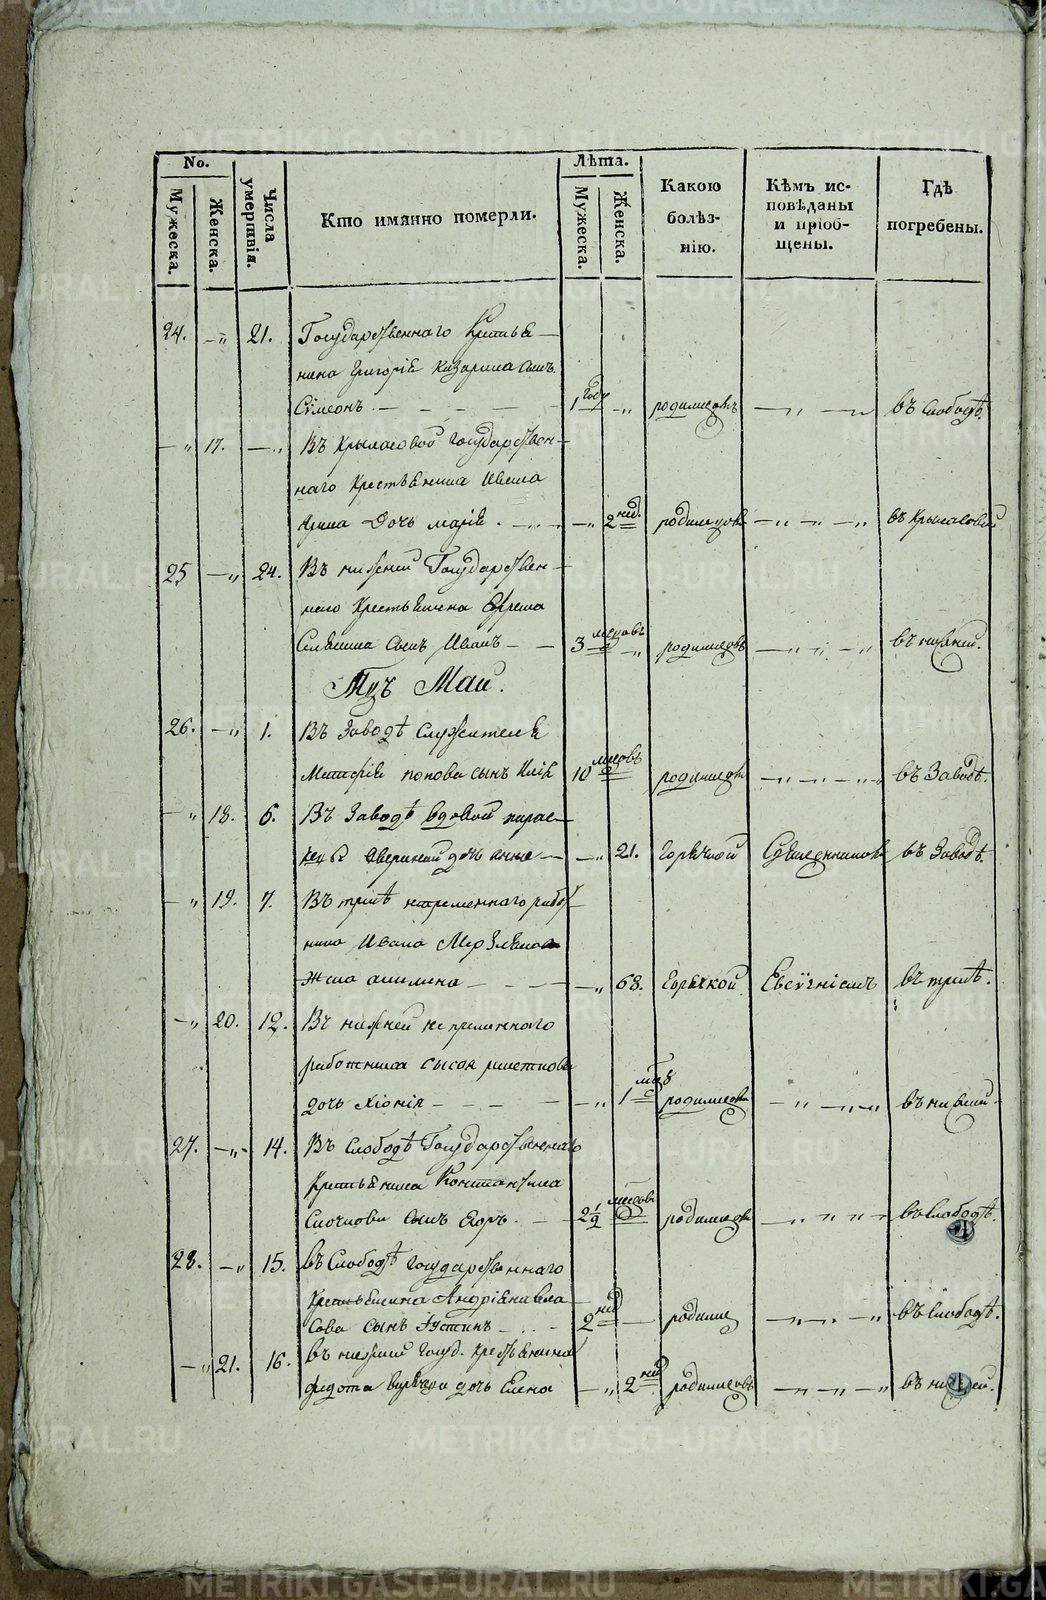 METRIKI.GASO-URAL.RU
No.
Мужеска.
Женска.
Числа умертвія.
Кто имянно померли.
Лѣта.
Мужеска.
Женска.
Какою болѣз-нію.
Кѣмъ ис-повѣданы и пріоб-щены.
Гдѣ погребены.
24. — „ 21. Государственнаго Крестья-
нина Григорія сынъ
Сѵмеонъ. 1 году „ родимецовъ — „ — въ Слободѣ.
— „ 17. — „ Въ Крыласовой Государствен-
наго Крестьянина Ивана
дочь Марія. — „ 2 нед. родимецовъ — „ — „ — „ въ Крыласовой
25 — „ 24. Въ нижней Государствен-
наго Крестьянина Ефрема
сынъ Иванъ — — 3 „ родимецовъ — „ — „ въ нижней.
Мцъ Маи.
26. — „ 1. Въ Заводѣ Служителя
попова сынъ Илія 10 родимецовъ — „ — „ — „ въ Заводѣ.
— „ 18. 6. Въ Заводѣ вдовой парас-
кевы дочь анна — — „ 21. Горячкой Священникомъ въ Заводѣ.
— „ 19. 7. Въ непременнаго работ
ника Ивана
жена — — „ 68. Горячкой. Евгѣніемъ въ
— „ 20. 12. Въ нижней непременнаго
работника сысоя
дочь Хіонія — — — „ 1 мцъ родимецовъ — „ — „ — „ въ нижней.
27. — „ 14. Въ Слободѣ Государственнаго
Крестьянина Константина
сынъ Егоръ. — 2 1/2 родимецовъ — „ „ „ въ Слободѣ.
28. — „ 15. въ Слободѣ Государственнаго
Крестьянина Андріяна вла
сова сынъ Іустинъ — 2 нед — родимец — „ — „ въ Слободѣ.
— „ 21. 16. въ нижней Госуд. Крестьянина
федота дочь Елена — „ 2 нед родимецовъ — „ — „ — „ въ нижней.